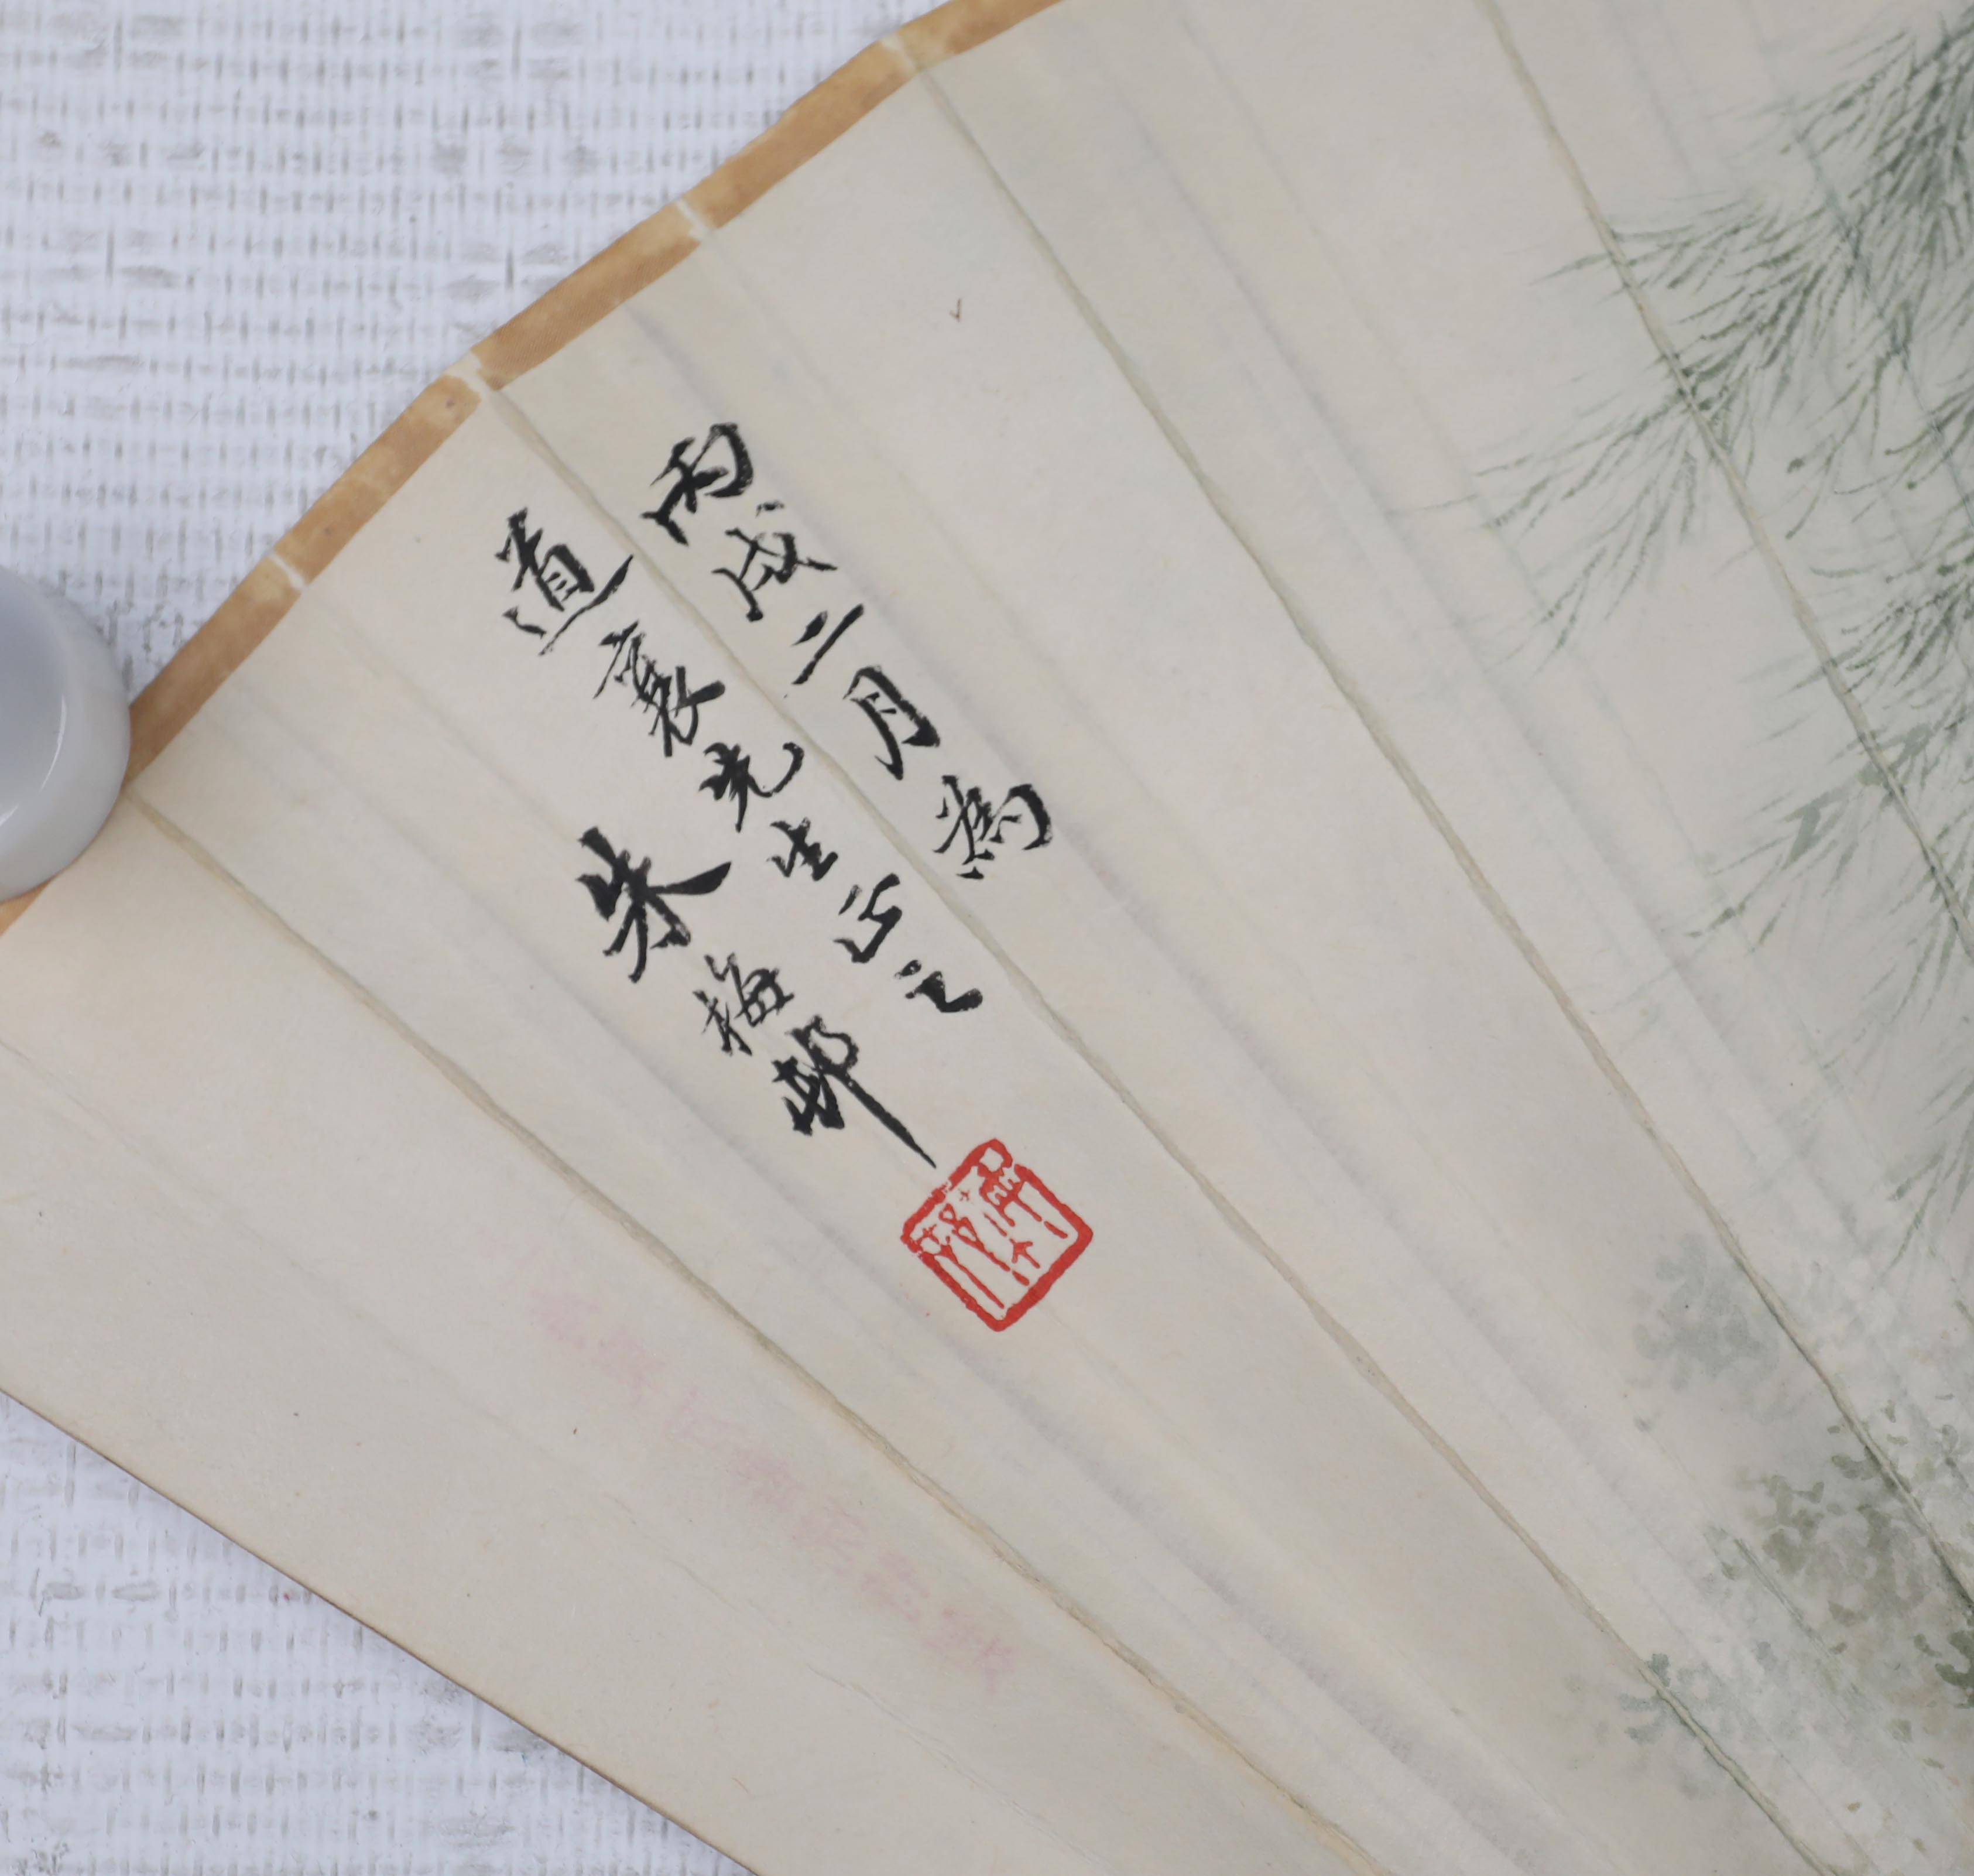 丙戌二月為
道襄先生正之
朱梅邨